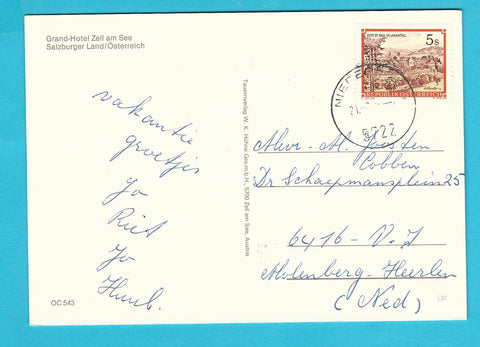 Grand-Hotel Zell am See
Salzburger Land/Österreich
vakantie
groetjes
Jo
Riet
Jo
Huub.
OC 543
Tauernverlag W. K. Hühne Ges.m.b.H., 5700 Zell am See, Austria
5s
REPUBLIK ÖSTERREICH
5722
Mevr. M. Joosten
Cobben
Dr Schaepmansplein 25
6416 - V.J
Molenberg-Heerlen
(Ned)